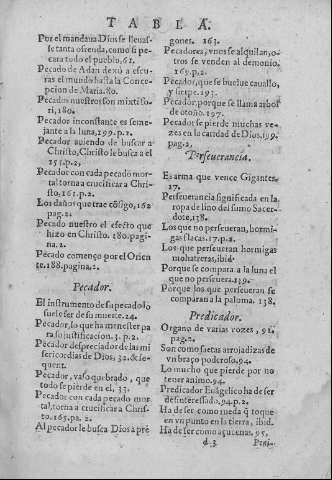 TABLA.
Por el mandaua Dios se lleuas-
se tanta ofrenda, como si pe-
cara todo el pueblo, 61.
Pecado de Adan dexò a escu-
ras el mundo hasta la Conce-
pcion de Maria. 80.
Pecados nuestros son mixti fo-
ri, 180.
Pecador inconstante es seme-
jante a la luna, 199. p. 2.
Pecador auiendo de buscar a
Christo, Christo le busca a el
151. p. 2,
Pecador con cada pecado mor
tal torna a crucificar a Chri-
sto. 161. p. 2.
Los daños que trae cõsigo, 162
pag. 2.
Pecado nuestro el efecto que
hizo en Christo. 180. pagin
na. 2.
Pecado començo por el Orien
te. 188. pagina 2.
Pecador.
El instrumento de su pecado lo
suele ser de su muerte. 24.
Pecador, lo que ha menester pa
ra su justificacion. 3. p. 2.
Pecador despreciador de las mi
sericordias de Dios, 32. & se-
quent.
Pecador, vaso quebrado, que
todo se pierde en el. 33.
Pecador con cada pecado mor
tal, torna a crucificar a Chris-
to. 165. pa. 2.
Al pecador le busca Dios a pre
gones. 163.
Pecadores, vnos se alquilan, o-
tros se venden al demonio.
165. p. 2.
Pecador, que se buelue cauallo,
y sirpe. 193.
Pecador, porque se llama arbol
de otoño. 197.
Pecador se pierde muchas ve-
zes en la caridad de Dios, 199.
pag. 2,
Perseuerancia.
Es arma que vence Gigantes.
17.
Perseuerancia significada en la
ropa de lino del sumo Sacer-
dote, 138.
Los que no perseueran, hormi-
gas flacas. 17. p. 2.
Los que perseueran hormigas
mohatreras, ibid.
Porque se compara a la luna el
que no perseuera. 139.
Porque los que perseueran se
comparan a la paloma. 138.
Predicador.
Organo de varias vozes, 91.
pag. 2.
Son como saetas arrojadizas de
vn braço poderoso. 94.
Lo mucho que pierde por no
tener animo. 94.
Predicador Euãgelico ha de ser
desinteressado. 94. p. 2.
Ha de ser como rueda q̃ toque
en vn punto en la tierra, ibid.
Ha de ser como açucenas. 95.
d 3
Predi-